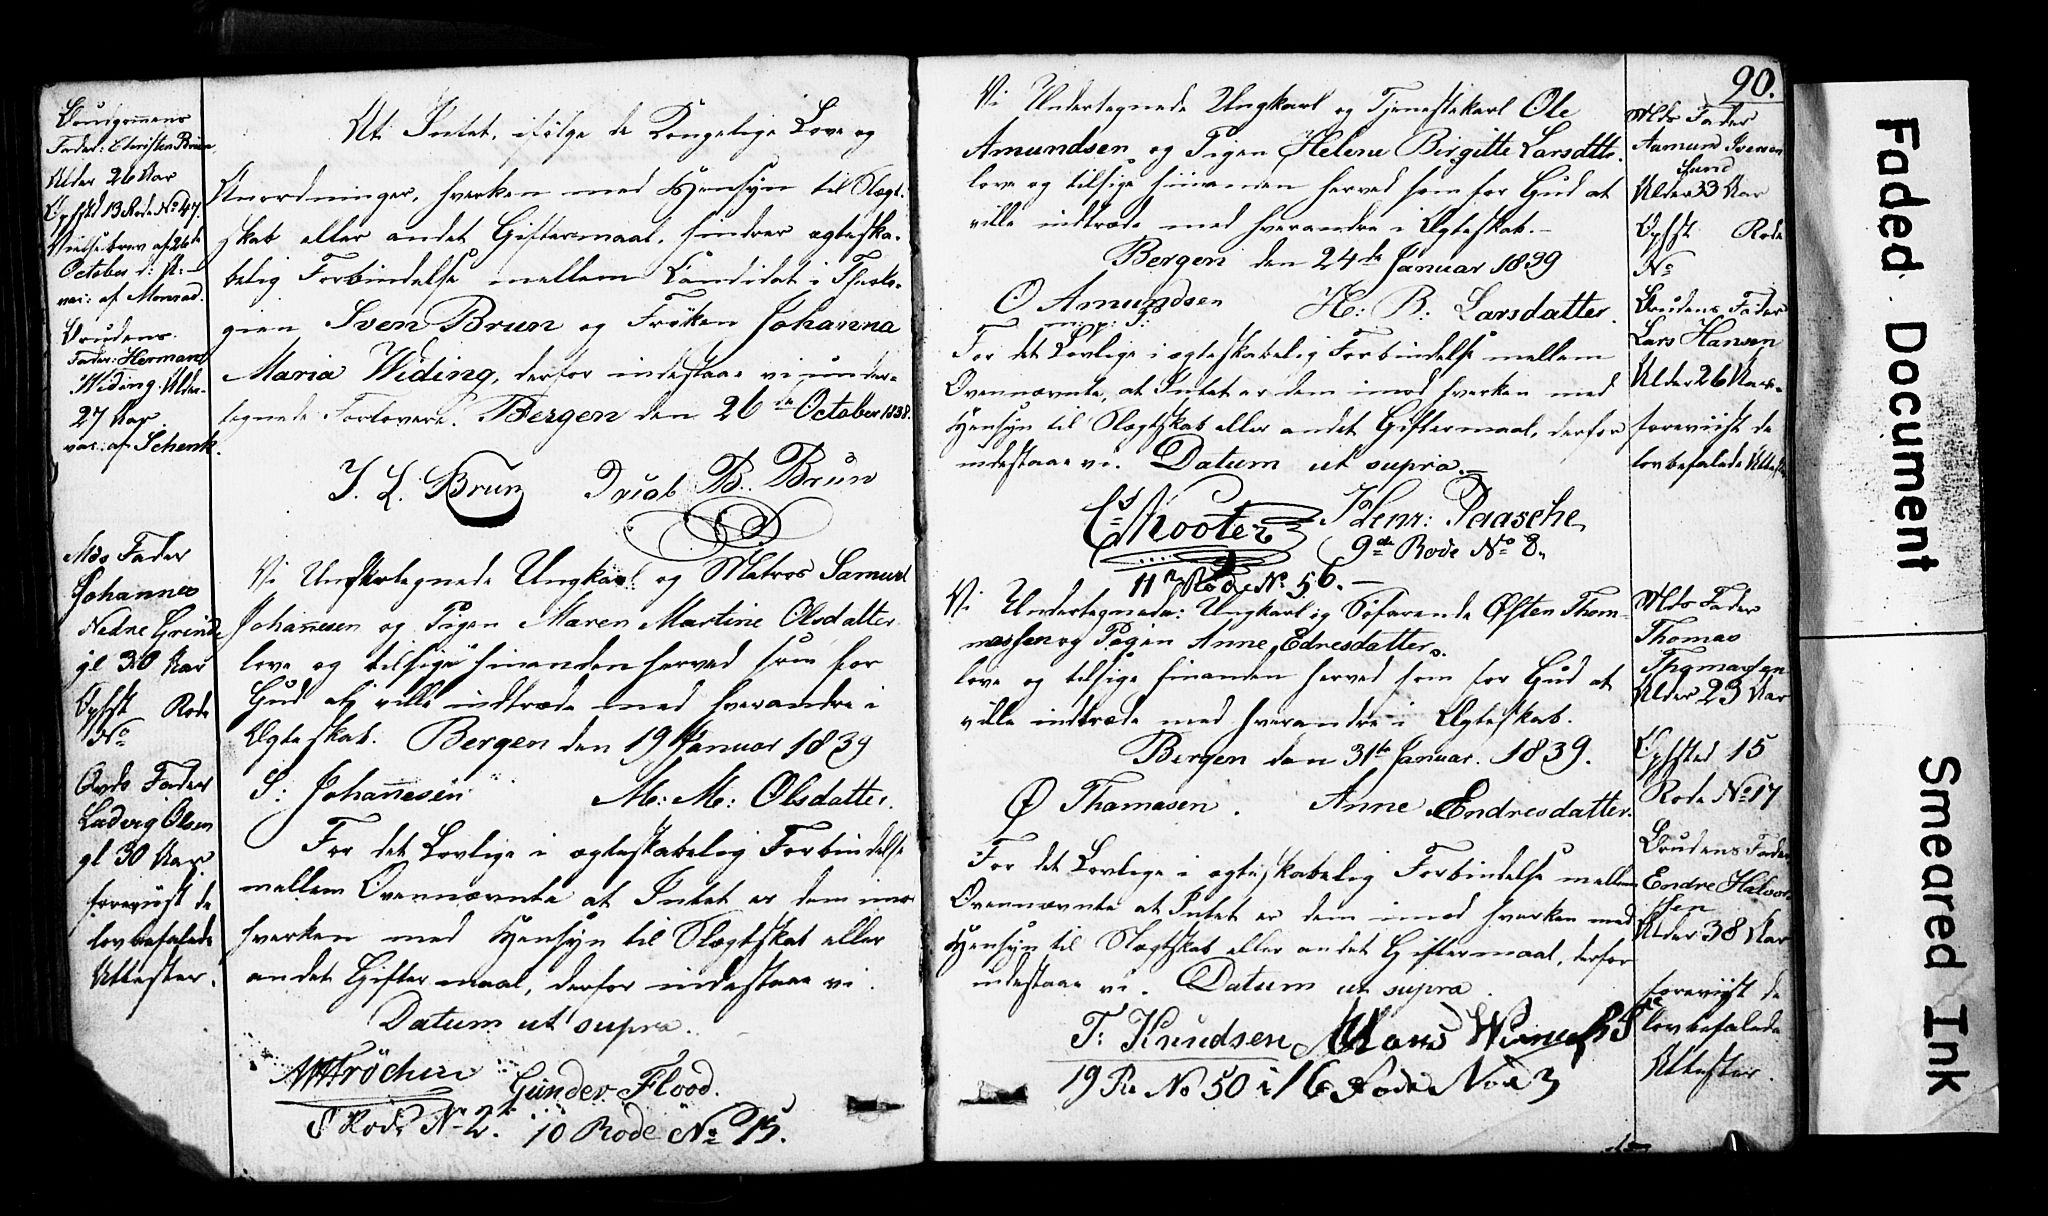 Brudgommens
Fader: Christen Brun
Alder 26 Aar
Opholdt 13 Rode No 47.
Vielsebrev af 26de
October d: A: –
vac: af Monrad.
Brudens
Fader: Herman
Widing. Alder
27 Aar
vac: af Schenk.
At Intet, ifølge de Kongelige Love og
Anordninger, hverken med Hensyn til Slægt-
skab eller andet Giftermaal, hindrer ægteska-
belig Forbindelse mellem Candidat i Theolo-
gien Sven Brun og Frøken Johanna
Maria Widing, derfor indestaae vi under-
tegnede Forlovere. Bergen den 26de October 1838.
J. L. Brun B. Brun
Mds Fader
Johannes
Nedre Grinde
gl 30 Aar
Ophst Rode
No
Qvds Fader
Ludvig Olsen
gl 30 Aar
foreviist de
lovbefalede
Attester.
Vi Undertegnede Ungkarl og Matros Samuel
Johannesen og Pigen Maren Martine Olsdatter
love og tilsige hinanden herved som for
Gud at ville indtræde med hverandre i
Ægteskab. Bergen den 19 Januar 1839
S: Johannesen M: M: Olsdatter.
For det Lovlige i ægteskabelig Forbindelse
mellem Ovennævnte at Intet er dem imod
hverken med Hensyn til Slægtskab eller
andet Giftermaal, derfor indestaae vi.
Datum ut supra.
Gunder Flood.
8 Rode No 2. 10 Rode No 15.
90.
Vi Undertegnede Ungkarl og Tjenestekarl Ole
Amundsen og Pigen Helene Birgitte Larsdttr.
love og tilsige hinanden herved som for Gud at
ville indtræde med hverandre i Ægteskab. –
Bergen den 24de Januar 1839
O Amundsen H: B: Larsdatter.
m: p: P:
For det Lovlige i ægteskabelig Forbindelse mellem
Ovennævnte, at Intet er dem imod hverken med
Hensyn til Slægtskab eller andet Giftermaal, derfor
indestaae vi. Datum ut supra. –
Kooter Henr: Paasche
9de Rode No 8.
11 Rode No 56. –
Mds Fader
Aamund Iversen
Sund
Alder 33 Aar
Ophst Rode
No
Brudens Fader
Lars Hansen
Alder 26 Aar
foreviist de
lovbefalede Attester
Vi Undertegnede: Ungkarl og Søfarende Østen Thom-
massen og Pigen Anne Edresdatter
love og tilsige hinanden herved som for Gud at
ville indtræde med hverandre i Ægteskab.
Bergen den 31te Januar. 1839.
Ø Thomasen. Anne Endresdatter.
For det Lovlige i ægteskabelig Forbindelse mellem
Ovennævnte at Intet er dem imod hverken med
Hensyn til Slægtskab eller andet Giftermaal, derfor
indestaae vi. Datum ut supra.
T: Knudsen Hans
19 Ro No 50 i 16 Rode No 3
Mds Fader
Thomas
Thomassen
Alder 23 Aar
Ophsted 15
Rode No 17
Brudens Fader
Endre Halvor-
sen
Alder 38 Aar
foreviist de
lovbefalede
Attester.
Faded Document
Smeared Ink